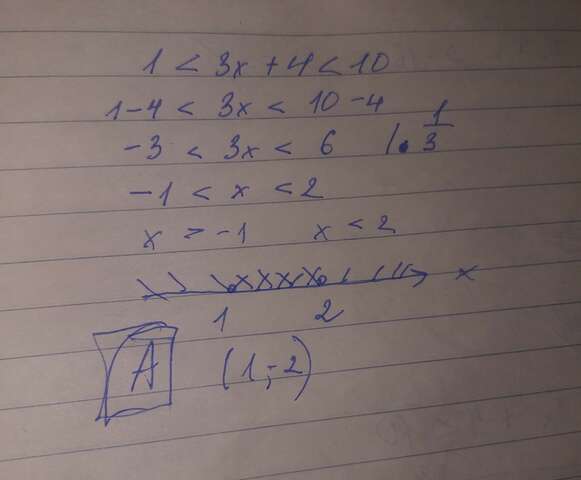 1 < 3x + 4 < 10
1-4 < 3x < 10-4
-3 < 3x < 6 / · 1/3
-1 < x < 2
x > -1 x < 2
x
1 2
A (1;-2)